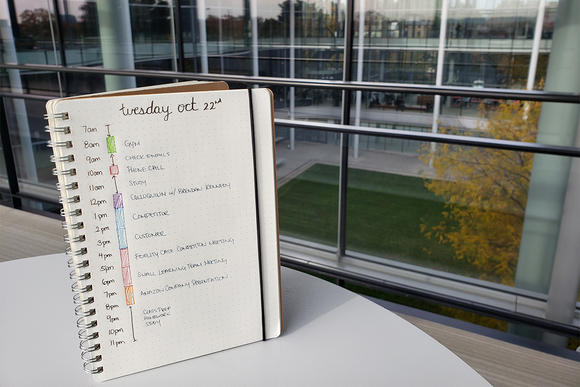 tuesday oct 22nd
7am
8am GYM
9am CHECK EMAILS
10am PHONE CALL
11am STUDY
12pm COLLOQUIUM W/ BRENDAN KENNEDY
1pm COMPETITOR
2pm
3pm CUSTOMER
4pm FIDELITY CASE COMPETITION MEETING
5pm SMALL LEARNING TEAM MEETING
6pm
7pm AMAZON COMPANY PRESENTATION
8pm CLASS PREP
9pm HOMEWORK
STUDY
10pm
11pm